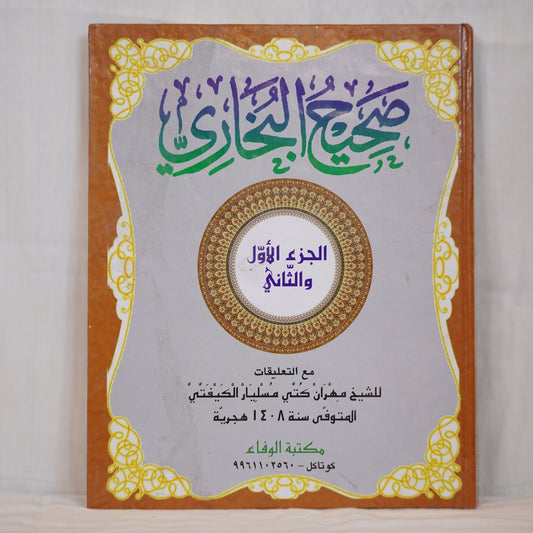 صَحِيحُ البُخَارِيّ
الجزء الأوّل
والثّاني
مع التعليقات
للشيخ مِهْرَانْ كُتِّي مُسْلِيَارْ الْكَيْفَتِيِّ
المتوفّى سنة ١٤٠٨ هجريّة
مكتبة الوفاء
كوتاكل - ٩٩٦١١٠٢٥٦٠